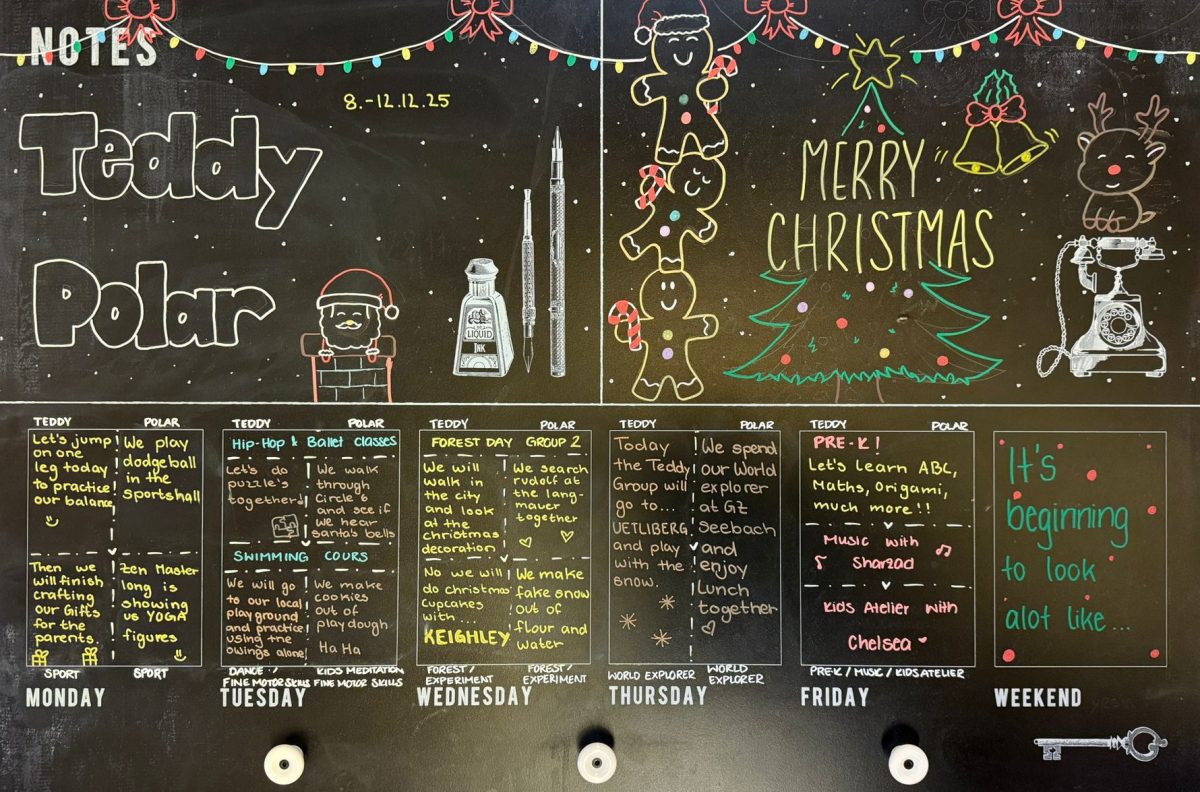 NOTES
8.-12.12.25
Teddy
Polar
LIQUID
INK
MERRY
CHRISTMAS
TEDDY POLAR
Let's jump
on one
leg today
to practice
our balance
We play
dodgeball
in the
sportshall
Then we
will finish
crafting
our Gifts
for the
parents.
Zen Master
long is
showing
us YOGA
figures
SPORT SPORT
MONDAY
TEDDY POLAR
Hip-Hop & Ballet classes
Let's do
puzzle's
together!
We walk
through
Circle 6
and see if
we hear
santa's bells
SWIMMING COURS
We will go
to our local
playground
and practice
using the
swings alone
We make
cookies
out of
playdough
Ha Ha
DANCE
FINE MOTOR SKILLS
KIDS MEDITATION
FINE MOTOR SKILLS
TUESDAY
TEDDY POLAR
FOREST DAY GROUP 2
We will
walk in
the city
and look
at the
christmas
decoration
We search
rudolf at
the lang-
mauer
together
No we will
do christmas
cupcakes
with...
KEIGHLEY
We make
fake snow
out of
flour and
water
FOREST/
EXPERIMENT
FOREST/
EXPERIMENT
WEDNESDAY
TEDDY POLAR
Today
the Teddy
Group will
go to...
UETLIBERG
and play
with the
snow.
We spend
our World
explorer
at GZ
seebach
and
enjoy
Lunch
together
WORLD EXPLORER
WORLD
EXPLORER
THURSDAY
TEDDY POLAR
PRE-K!
Let's learn ABC,
Maths, Origami,
much more!!
Music with
Sharzad
Kids Atelier with
Chelsea
PRE-K / MUSIC / KIDSATELIER
FRIDAY
It's
beginning
to look
alot like...
WEEKEND